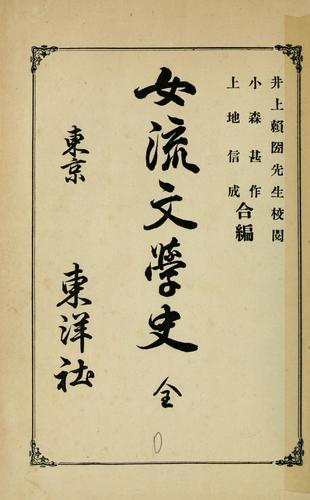 井上賴囶先生校閲
小森甚作
上地信成
合編
女流文學史 全
東京 東洋社